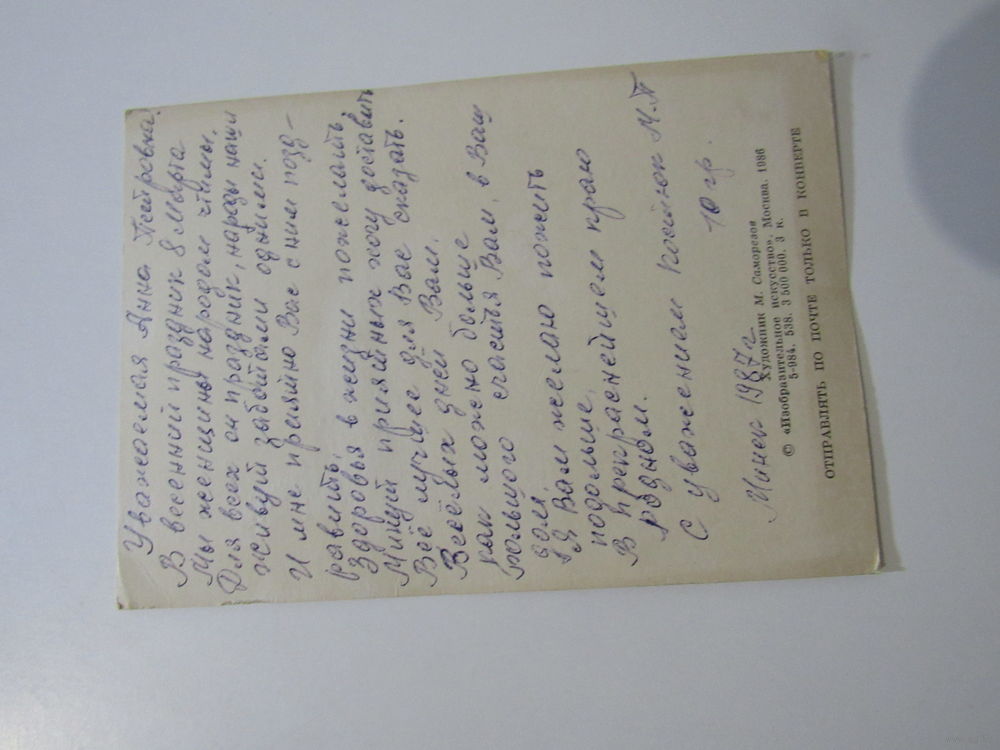 Уважаемая Анна Петровна!
В весенний праздник 8 Марта
Мы женщины народом чтимы,
Для всех он праздник, народы наши
живут заботами одними.
И мне приятно Вас с ним позд-
равить,
Здоровья в жизни пожелать,
Минут приятных хочу доставить
Всё лучшее для Вас сказать.
Весёлых дней Вам,
как можно больше
большого счастья Вам, в Ваш
дом.
Я Вам желаю пожить
подольше,
В прекраснейшем краю
родном.
С уважением М.П
10 гр.
Минск 1987г
Художник М. Саморезов
© «Изобразительное искусство». Москва. 1986
5-984. 538. 3 500 000. 3 к.
ОТПРАВЛЯТЬ ПО ПОЧТЕ ТОЛЬКО В КОНВЕРТЕ